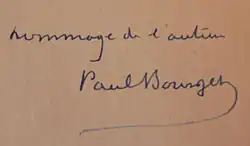 hommage de l'auteur
Paul Bourget